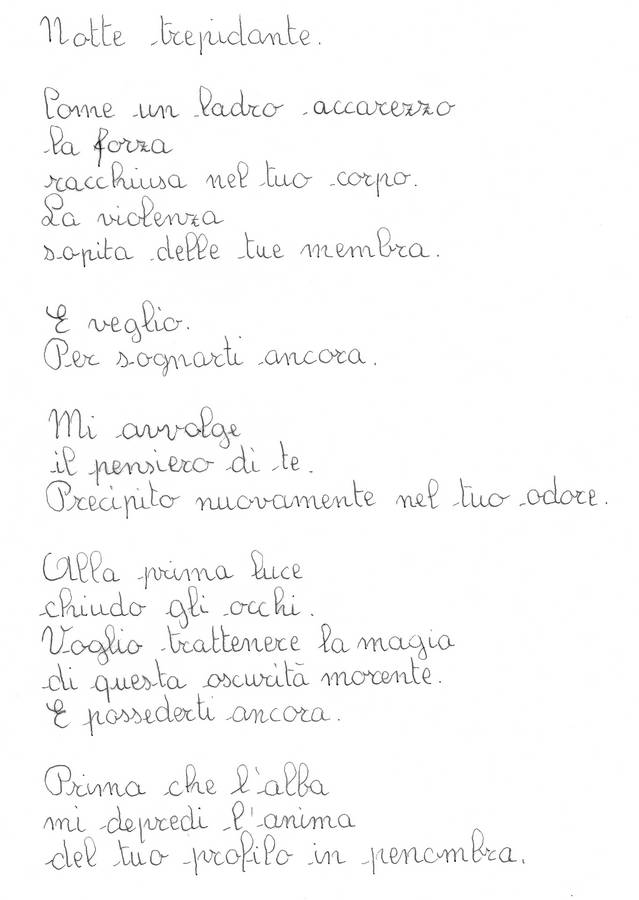 Notte trepidante.
Come un ladro accarezzo
la forza
racchiusa nel tuo corpo.
La violenza
sopita delle tue membra.
E veglio.
Per sognarti ancora.
Mi avvolge
il pensiero di te.
Precipito nuovamente nel tuo odore.
Alla prima luce
chiudo gli occhi.
Voglio trattenere la magia
di questa oscurità morente.
E possederti ancora.
Prima che l'alba
mi depredi l'anima
del tuo profilo in penombra.